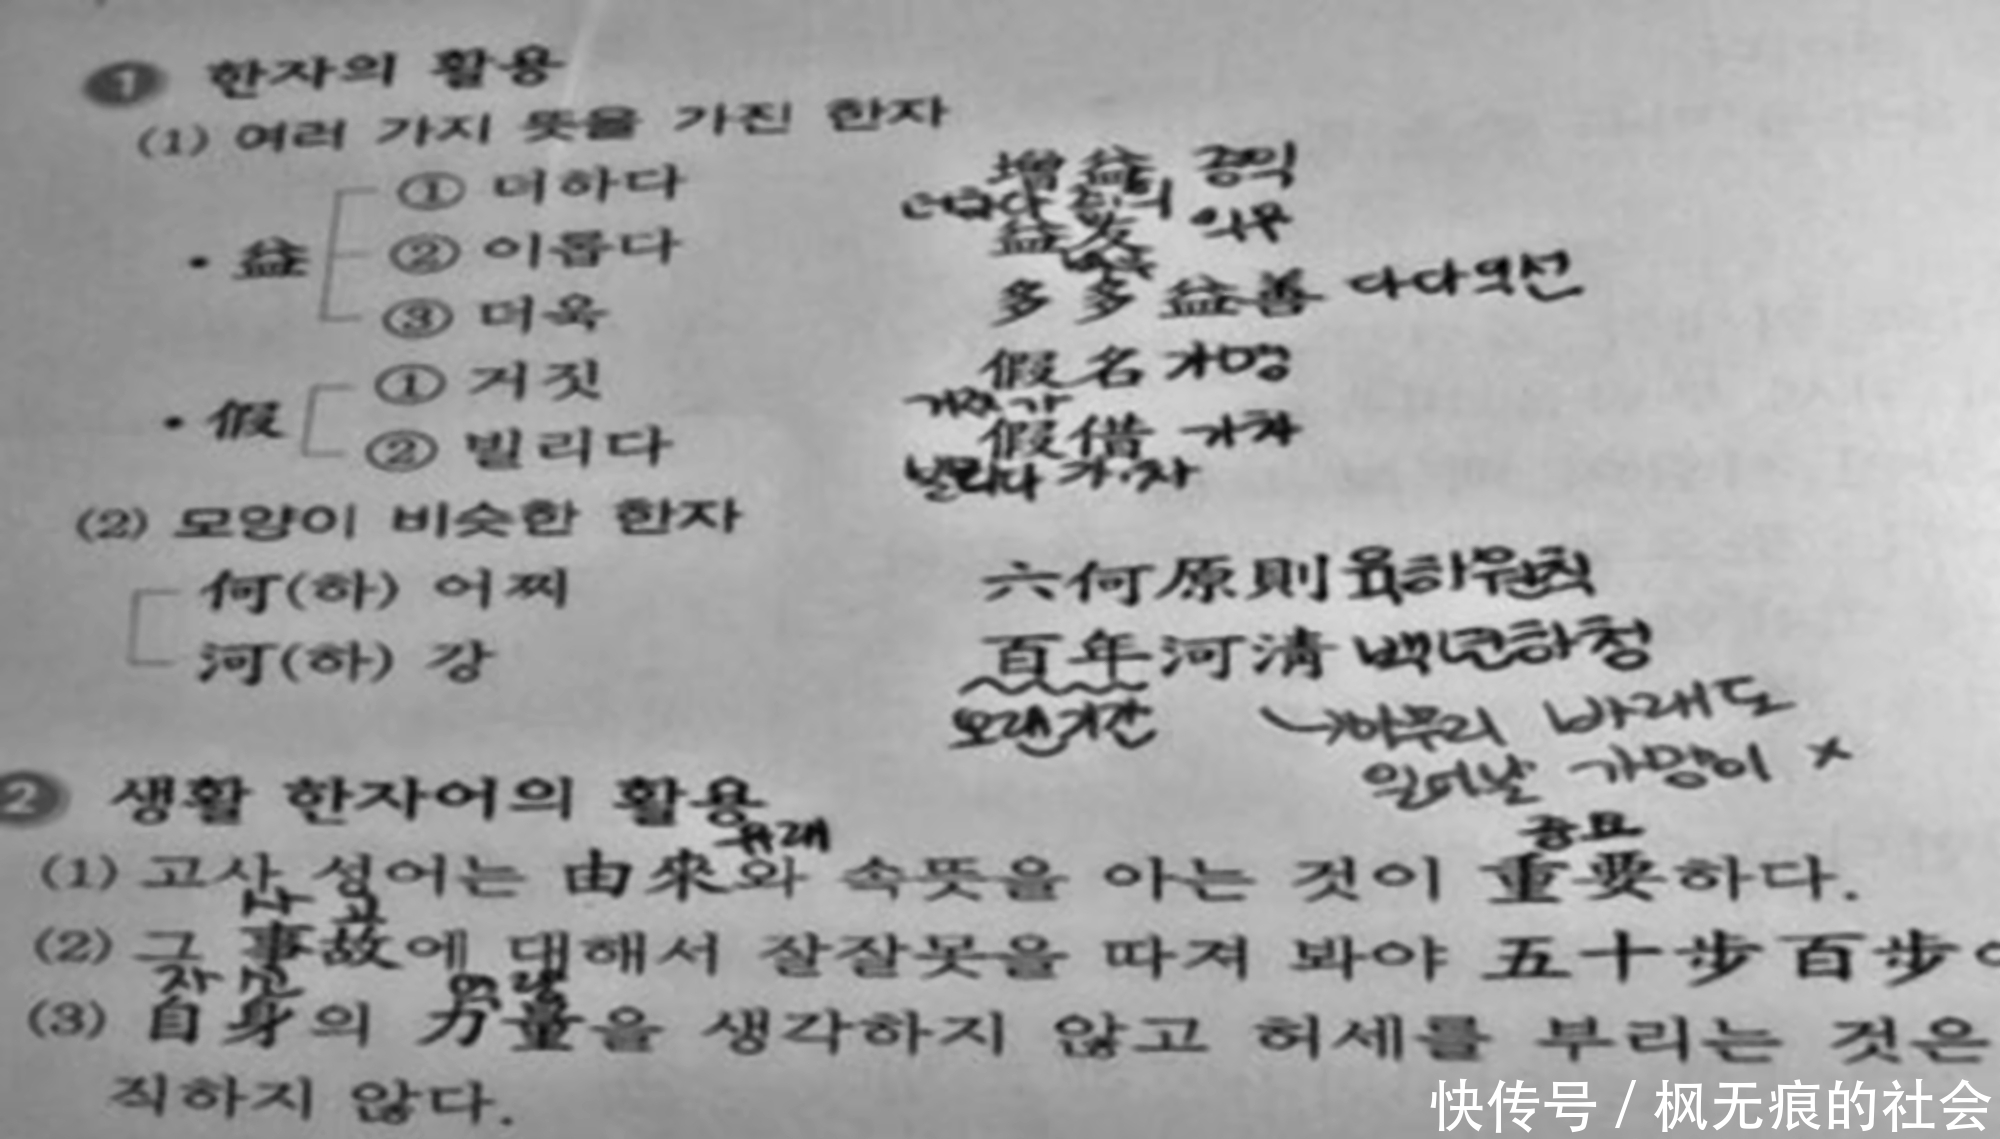 1 한자의 활용
(1) 여러 가지 뜻을 가진 한자
① 더하다 增益 증익
· 益 ② 이롭다 益友 익우
③ 더욱 多多益善 다다익선
① 거짓 假名 가명
· 假
② 빌리다 假借 가차
빌리다 가·차
(2) 모양이 비슷한 한자
何(하) 어찌 六何原則 육하원칙
河(하) 강 百年河淸 백년하청
오랜기간 아무리 바래도
일어날 가망이 x
2 생활 한자어의 활용
유래 중요
(1) 고사 성어는 由來와 속뜻을 아는 것이 重要하다.
사고
(2) 그 事故에 대해서 잘잘못을 따져 봐야 五十步百步
자신 역량
(3) 自身의 力量을 생각하지 않고 허세를 부리는 것은
직하지 않다.
快传号 / 枫无痕的社会